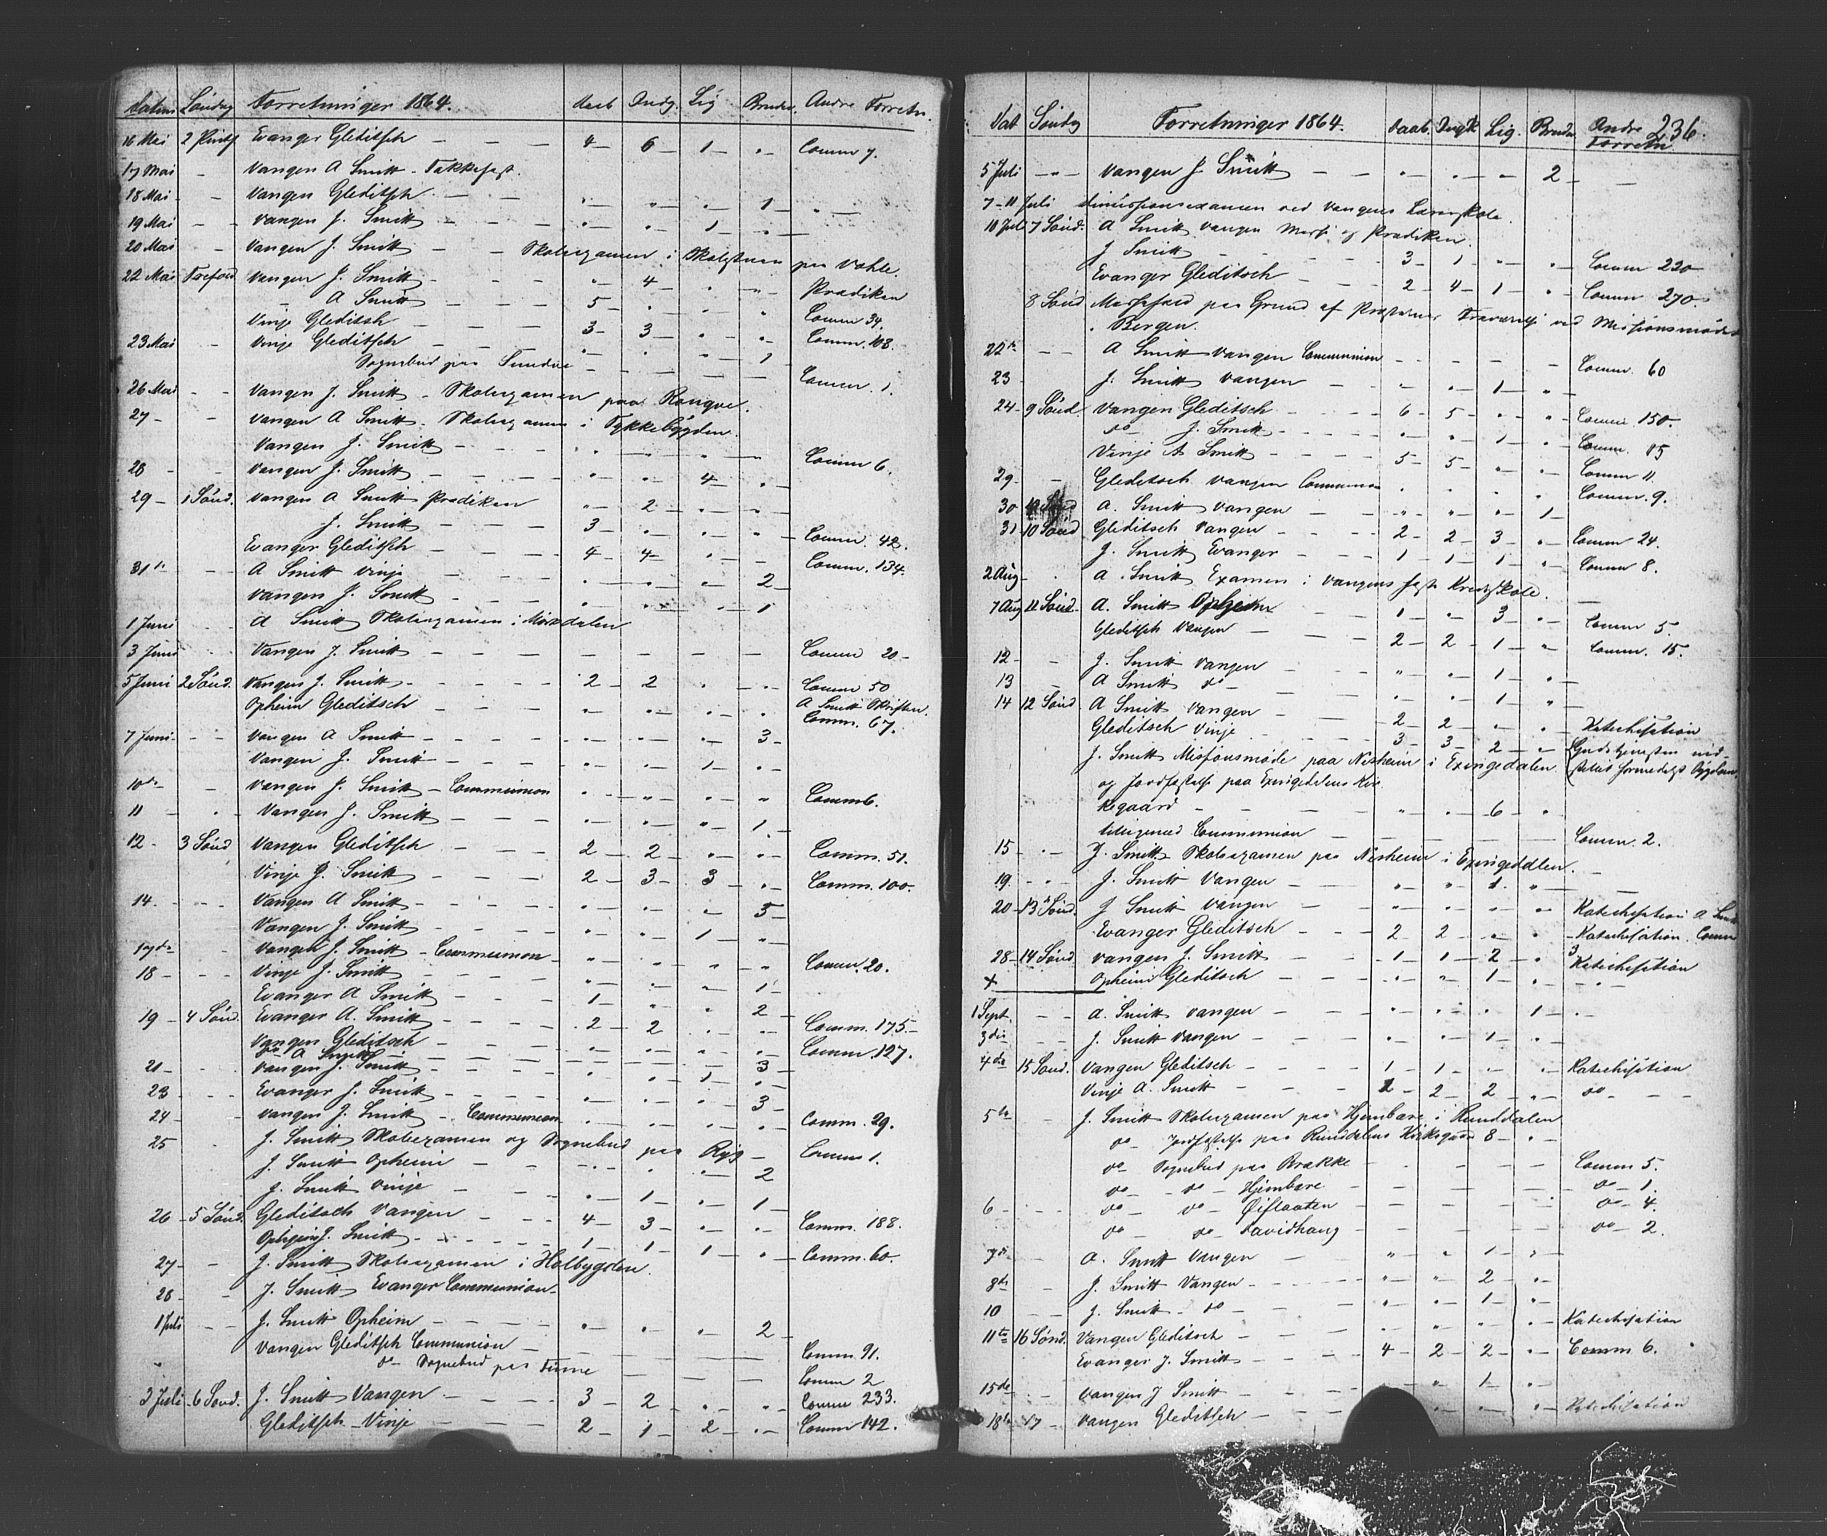 Datum Søndag Forretninger 1864. Daab Indg. Lig Brudev. Andre Forretn.
16 Mai 2 Pintsd Evanger Gleditsch — 4 — 6 — 1 — „ — Comm 7.
17 Mai — Vangen A Smitt — Takkefest.
18 Mai — Vangen Gleditsch — „ — „ — „ — 1 — „
19 Mai — Vangen J. Smitt — „ — „ — 1 — „
20 Mai — Vangen J. Smitt — Skoleexamen i Skolestuen paa Vohle.
22 Mai Trefold Vangen J. Smitt — „ — 4 — „ — „ — Prædiken
— A Smitt — 5 — „ — „ — „
Vinje Gleditsch — 3 — 3 — „ — „ Comm 34.
23 Mai — Vinje Gleditsch — „ — „ — „ — 1 Comm. 108.
Sognebud paa — Comm. 1.
26 Mai — Vangen J. Smitt — Skoleexamen paa Rongve.
27 — Vangen A Smitt — Skoleexamen i Tykkebygden.
Vangen J. Smitt — Comm 6.
28 — Vangen J. Smitt — „ — „ — 4 — „
29 — 1 Sønd. Vangen A Smitt Prædiken — „ — 2 — „ — „
J. Smitt — 3 — „ — „ — „ Comm. 42.
Evanger Gleditsch — 4 — 4 — „ — „ Comm. 134.
31te A Smitt Vinje — „ — „ — „ — 2 —
Vangen J. Smitt — „ — „ — „ — 1
1 Juni A Smitt Skoleexamen i
3 Juni Vangen J. Smitt — — — — Comm 20 —
5 Juni 2 Sønd. Vangen J. Smitt — 2 — 2 — „ — „ — Comm 50
Opheim Gleditsch — „ — „ — „ — „ A Smitt Skriften. Comm. 67.
7 Juni — Vangen A Smitt — „ — „ — „ — 3 —
Vangen J. Smitt — „ — „ — 1 — „
10de — Vangen J. Smitt — Communion „ — „ — „ — „ Comm 6.
11 — Vangen J. Smitt — „ — „ — „ — 1 —
12 — 3 Sønd Vangen Gleditsch — 2 — 2 — „ — „ — Comm. 51.
Vinje J. Smitt — 2 — 3 — 3 — „ — Comm. 100 —
14 — Vangen A Smitt — „ — „ — „ — 5 —
Vangen J. Smitt — „ — „ — 1 — „
17de — Vangen J. Smitt — Communion — „ — „ — „ — „ Comm. 20.
18 — Vinje J. Smitt — „ — „ — „ — 1 —
Evanger A Smitt — 1 — „ — „ — 2 —
19 — 4 Sønd. Evanger A. Smitt — 2 — 2 — „ — „ Comm. 175 —
Vangen Gleditsch — „ — „ — „ — „ Comm. 127.
do A Smitt — 3 —
21 — Vangen J. Smitt — „ — „ — 1 — „
23 — Evanger J. Smitt — „ — „ — „ — 3 —
24 Vangen J. Smitt — Communion — „ — „ — „ — „ Comm. 29.
25 J. Smitt Skoleexamen og Sognebud paa Comm 1.
J. Smitt Opheim — „ — „ — „ — 2
J. Smitt Vinje — „ — 1 — „ — 1 —
26 — 5 Sønd. Gleditsch Vangen — 4 — 3 — „ — „ — Comm. 188.
Opheim J. Smitt — 1 — 1 — 1 — „ — Comm. 60.
27 — J. Smitt Skoleexamen i Holbygden.
28 — J. Smitt Evanger Communion —
1 Juli — J. Smitt Opheim — „ — „ — „ — 2 —
Vangen Gleditsch Communion — Comm. 91.
„ do — Sognebud paa — Comm 2
3 Juli — 6 Sønd. J. Smitt Vangen — 3 — 2 — „ — „ — Comm 233.
Gleditsch — Vinje — 2 — 1 — 2 — „ — Comm 142.
Dat Søndg Forretninger 1864. Daab. Indgk Lig. Brudev Andre Forretn 236.
5 Juli — „ — Vangen J Smitt — — „ — „ — „ — 2 — —
7 – 11 Juli Dimissionsexamen ved Vangens Lærerskole.
10 Juli 7 Sønd. A Smitt Vangen Messe og Prædiken.
J Smitt — 3 — 1 — „ — „ — Comm 220 —
Evanger Gleditsch — 2 — 4 — 1 — „ — Comm 270 —
8 Sønd Messefald paa Grund af Præsternes Fraværelse ved Missionsmødet
i Bergen.
22de — A Smitt Vangen Communion — Comm. 60
23 — J. Smitt Vangen — „ — „ — 1 — „
24 — 9 Sønd. Vangen Gleditsch — 6 — 5 — „ — „ — Comm 150.
do — J. Smitt — „ — „ — 1 — „ Comm. 15
Vinje A Smitt — 5 — 5 — „ — „ — Comm. 11
29 — Gleditsch Vangen Communion „ — „ — „ — „ Comm. 9.
30 A. Smitt Vangen — „ — „ — „ — 1 —
31 10 Sønd Gleditsch Vangen — 2 — 2 — 3 — „ — Comm 24.
J. Smitt Evanger — 1 — 1 — 1 — „ Comm 8.
2 Aug — A. Smitt Examen i Vangens faste Kredsskole.
7 Aug 11 Sønd. A. Smitt Opheim — 1 — „ — 3 — „ — Comm 5.
Gleditsch Vangen — 2 — 2 — 1 — „ — Comm. 15.
12 — J. Smitt Vangen — „ — „ — 1 — „
13 — A Smitt do — „ — „ — 1 — „
14 12 Sønd A Smitt Vangen — 2 — 2 — „ — „ — Katechisation
Gleditsch Vinje — 3 — 3 — 2 — „ — Gudstjenesten
J. Smitt Missionsmøde paa Nesheim i Exingedalen
og Jordfæstelse paa Exingedalens Kir-
kegaard — „ — „ — 6 — „
tilligemed Communion — Comm. 2.
15 — J. Smitt Skoleexamen paa Nesheim i Exingedalen.
19. — J. Smitt Vangen — „ — „ — 1. — „ —
20 — 13 Sønd. J Smitt Vangen — „ — „ — „ — „ Katechisation A Smitt
Evanger Gleditsch — 2 — 2 — „ — „ — Katechisation. Comm 3
28 — 14 Sønd Vangen J. Smitt — 1 — 1 — 2 — „ Katechisation
x Opheim Gleditsch — „ — „ — 1 — „
1 Sept. — A. Smitt Vangen — „ — „ — „ — 1 —
3die — J. Smitt Vangen — „ — „ — 1 — „
4de 15 Sønd. Vangen Gleditsch — 1 — 1 — „ — „ Katechisation
Vinje A. Smitt — 2 — 2 — 2 — „ — do — —
5te J. Smitt Skoleexamen paa Hjembare i Runddalen
do — Jordfæstelse paa Runddalens Kirkegaard 8 — „ —
do — Sognebud paa Brække — Comm 5.
do — do — Hjembare — do — 1.
6 — do — do — Øiflaaten — do — 4.
do — do — — do — 2.
7de — A. Smitt Vangen — „ — „ — 1 — „ —
8de J. Smitt Vangen — „ — „ — 2 — „
10 — J. Smitt — do — „ — „ — 1 — „
11te — 16 Sønd. Vangen Gleditsch — „ — „ — „ — „ Katechisation
Evanger J. Smitt — 4 — 2 — 2 — „ — Comm 6.
15de — Vangen J Smitt — „ — „ — 1 — „
18de 17 — Vangen Gleditsch — „ — „ — „ — „ Katechisation